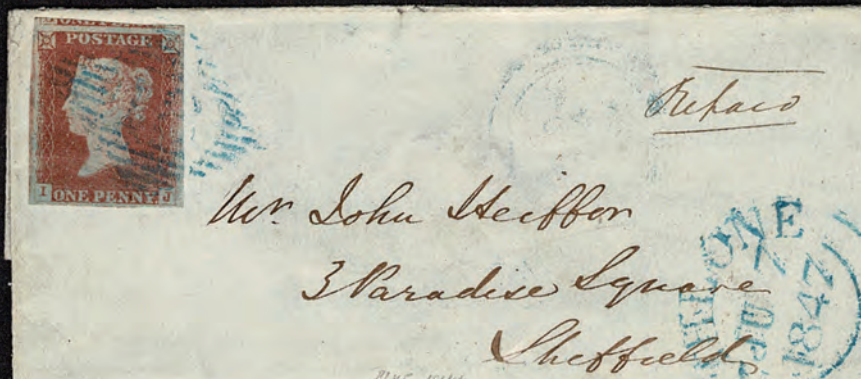 ONE PENNY
POSTAGE
I ONE PENNY. J
Prepaid
Mr. John Heiffor
3 Paradise Square
Sheffield
ONE
7
JU
1847